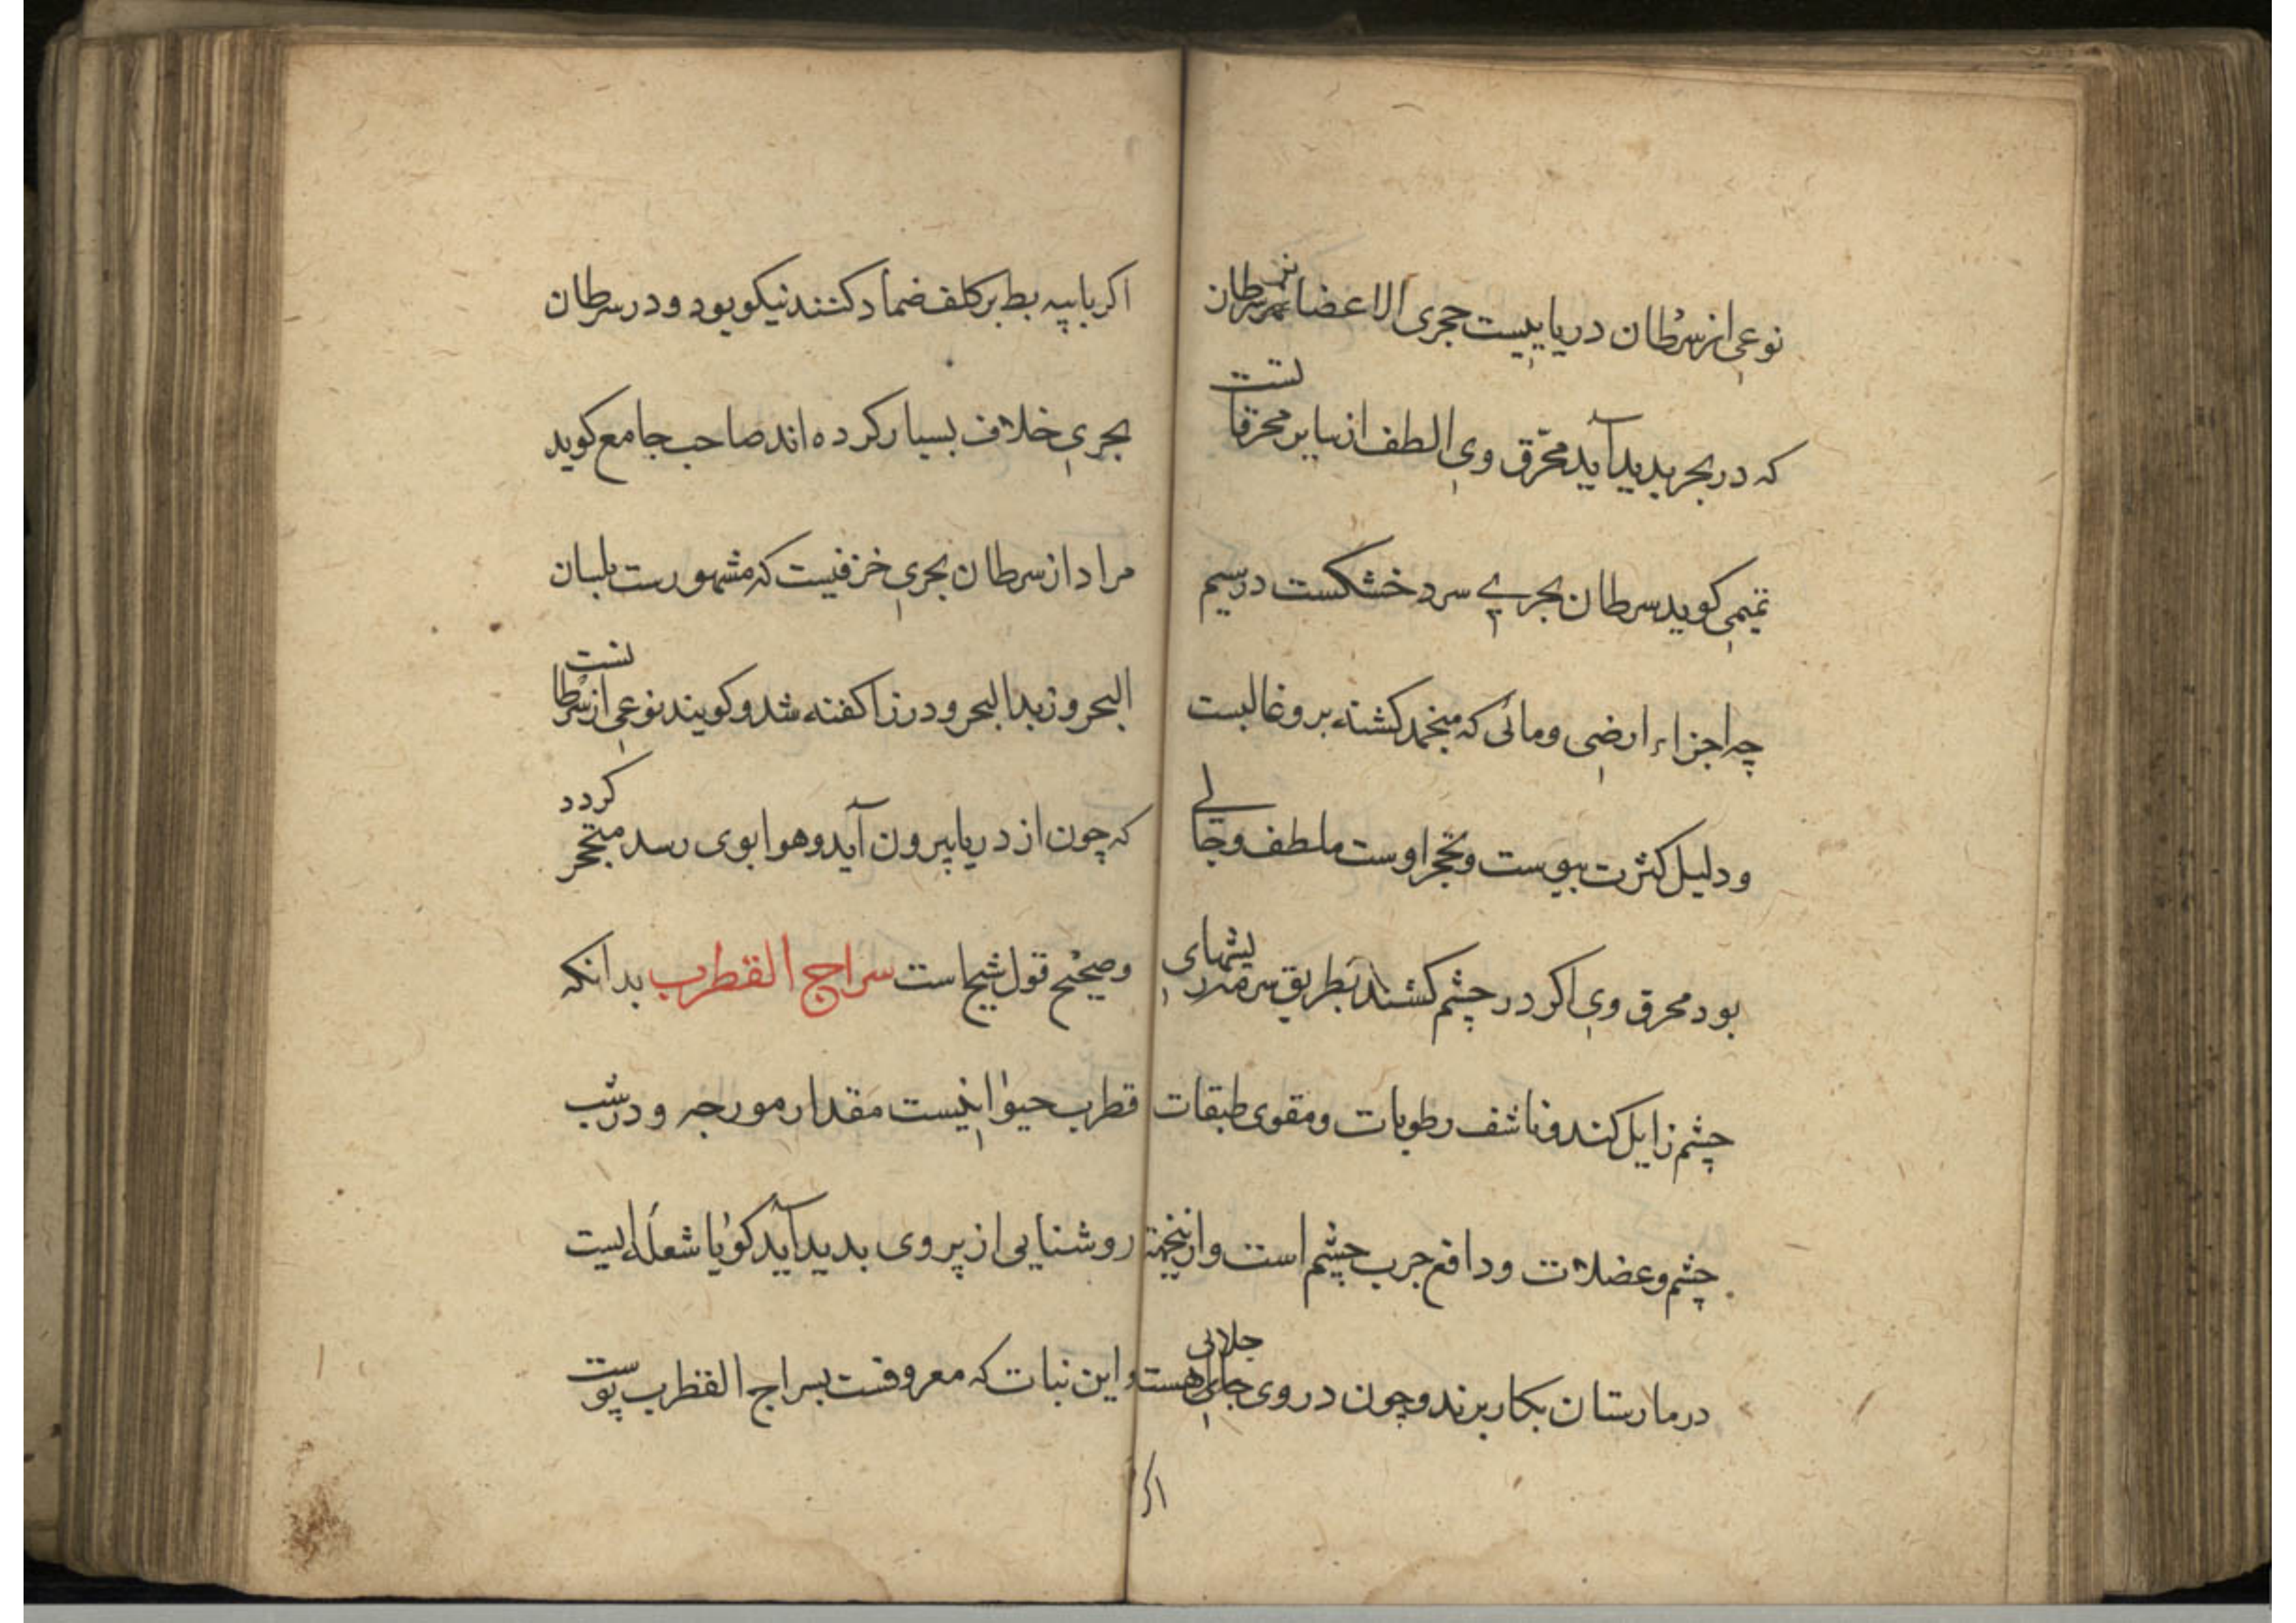 نوعی از سرطان دریاییست حجری الاعضا نه هر سرطان
که در بحر پدید آید محرّق وی الطف از سایر محرقاتست
تمیمی کوید سرطان بحری سرد خشکست در سیم
چه اجزاء ارضی ومائی که منجمد کشته بروغالبست
ودلیل کثرت یبوست وتحجر اوست ملطف وجالی
بود محرق وی اکر در چشم کشند بطریق سرمه
چشم زایل کند وناشف رطوبات ومقوی طبقات
چشم وعضلات ودافع جرب چشم است وازینجهة
در مارستان بکار برند وچون در وی جلائی هست
اکر
اکر با پیه بط بر کلف ضماد کنند نیکو بود ودر سرطان
بحری خلاف بسیار کرده اند صاحب جامع کوید
مراد از سرطان بحری خزفیست که مشهورست بلسان
البحر وزبد البحر ودر زا کفته شد وکویند نوعی از سرطانست
که چون از دریا بیرون آید وهوا بوی رسد متحجر کردد
وصحیح قول شیخ است سراج القطرب بدانکه
قطرب حیوانیست مقدار مورجه ودر شب
روشنایی از پر وی بدید آید کویا شعلهٔ ایست
واین نبات که معروفست بسراج القطرب پوست